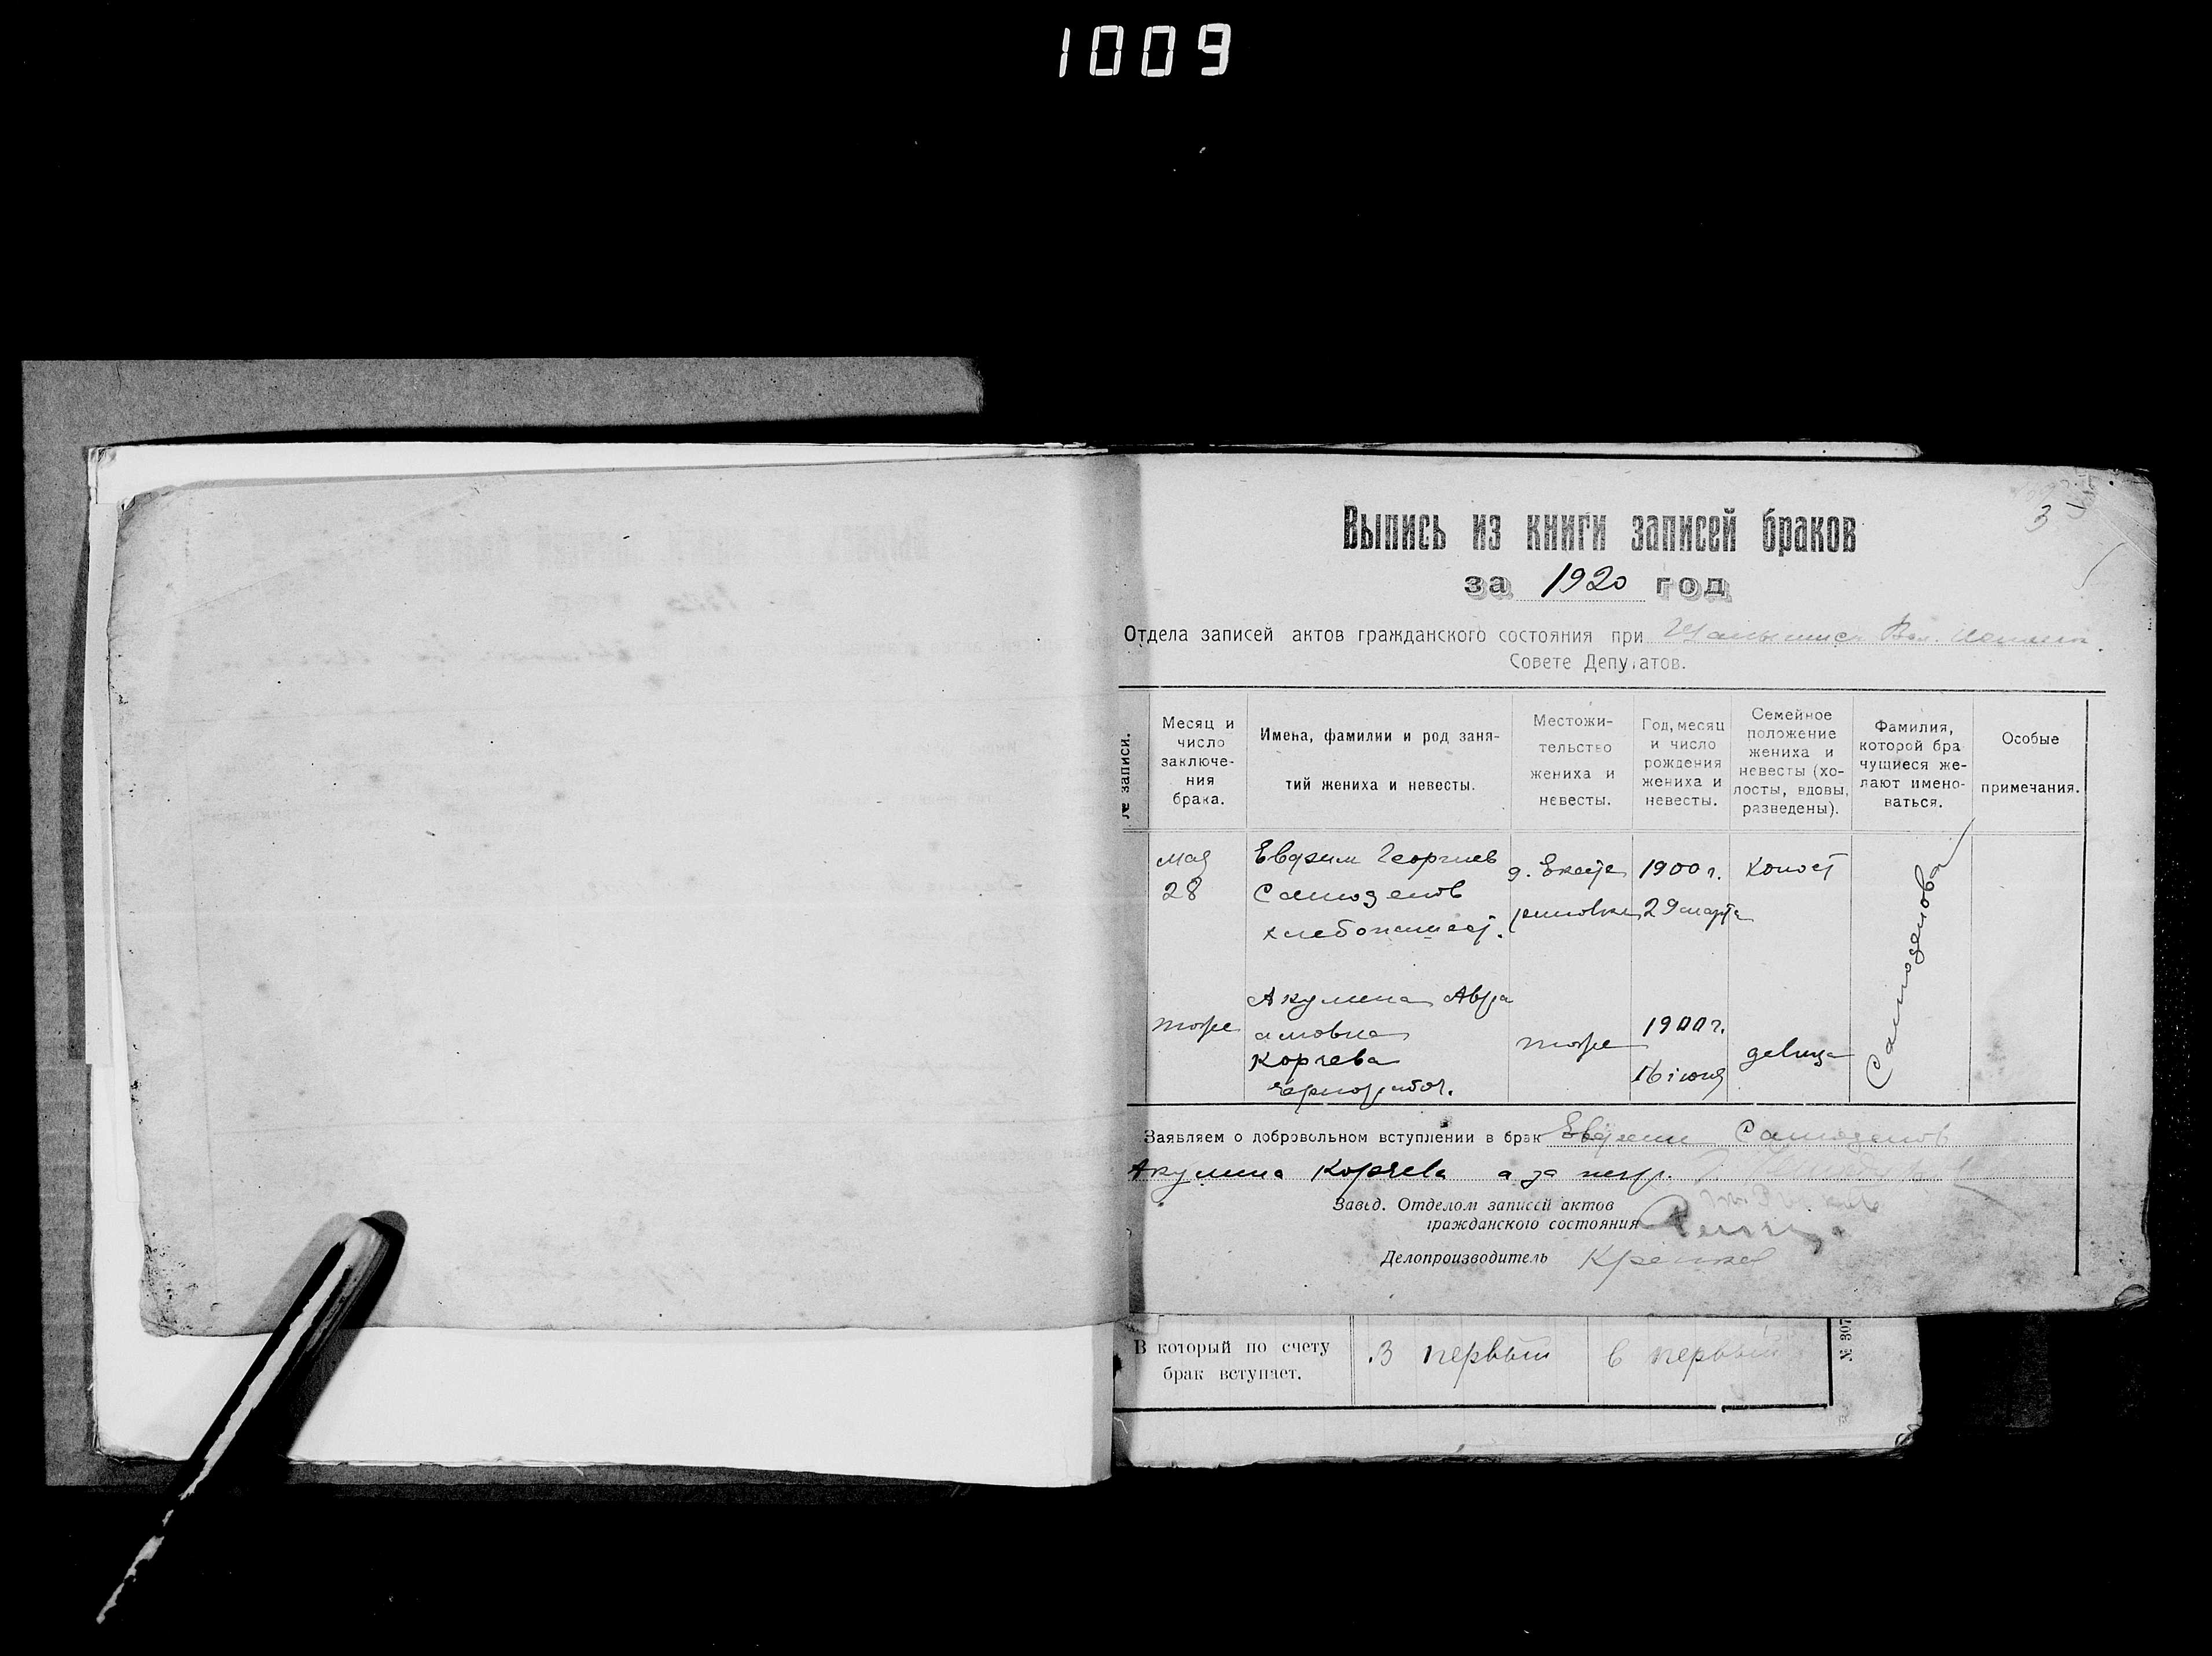 1009
3
Выпись из книги записей браков
за 1920 год
Отдела записей актов гражданского состояния при
Совете Депутатов.
№ записи.
Месяц и число заключе-ния брака.
Имена, фамилии и род заня-тий жениха и невесты.
Местожи-тельство жениха и невесты.
Год, месяц и число рождения жениха и невесты.
Семейное положение жениха и невесты (хо-лосты, вдовы, разведены).
Фамилия, которой бра чущиеся же-лают имено-ваться.
Особые примечания.
мая
28
Евдоким Георгиев
Самоделов
хлебопашест.
д. Екате
риновки
1900 г.
29 марта
холост
Самоделова
тоже
Акулина Авра
амовна
Корчева
чернорабоч.
тоже
1900 г.
16 июня
девица
Заявляем о добровольном вступлении в брак Евдоким Самоделов
Акулина Корчева а за негр.
Завед. Отделом записей актов
гражданского состояния
Делопроизводитель
В который по счету
брак вступает.
В первый
в первый
№ 307